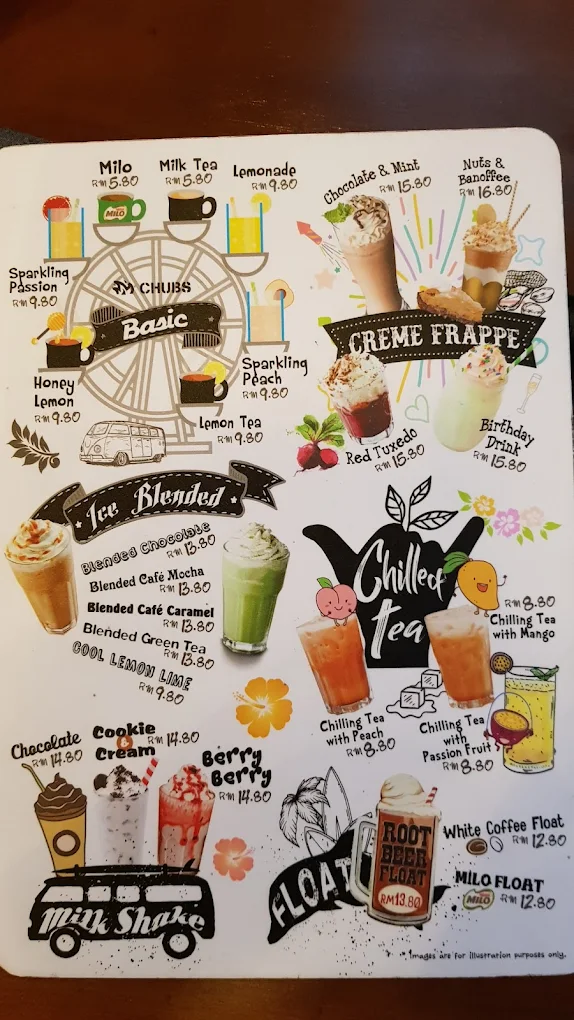 Milo
RM 5.80
Milk Tea
RM 5.80
Lemonade
RM 9.80
MILO
Sparkling
Passion
RM 9.80
CHUBS
Basic
Honey
Lemon
RM 9.80
Sparkling
Peach
RM 9.80
Lemon Tea
RM 9.80
Chocolate & Mint
RM 15.80
Nuts &
Banoffee
RM 16.80
CREME FRAPPE
Red Tuxedo
RM 15.80
Birthday
Drink
RM 15.80
Ice Blended
Blended Chocolate
RM 13.80
Blended Café Mocha
RM 13.80
Blended Café Caramel
RM 13.80
Blended Green Tea
RM 13.80
COOL LEMON LIME
RM 9.80
Chilled
tea
RM 8.80
Chilling Tea
with Mango
Chilling Tea
with Peach
RM 8.80
Chilling Tea
with
Passion Fruit
RM 8.80
Chocolate
RM 14.80
Cookie
&
Cream
RM 14.80
Berry
Berry
RM 14.80
Milk Shake
FLOAT
ROOT
BEER
FLOAT
RM13.80
White Coffee Float
RM 12.80
MILO FLOAT
MILO
RM 12.80
*Images are for illustration purposes only.